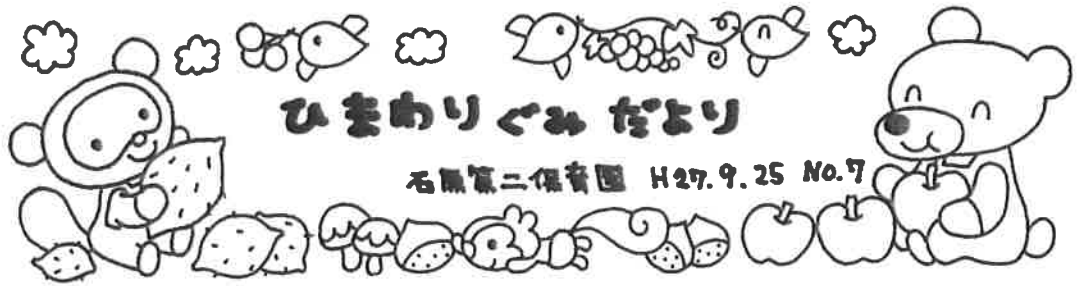 ひまわりぐみだより
石黒第二保育園 H27.9.25 No.7